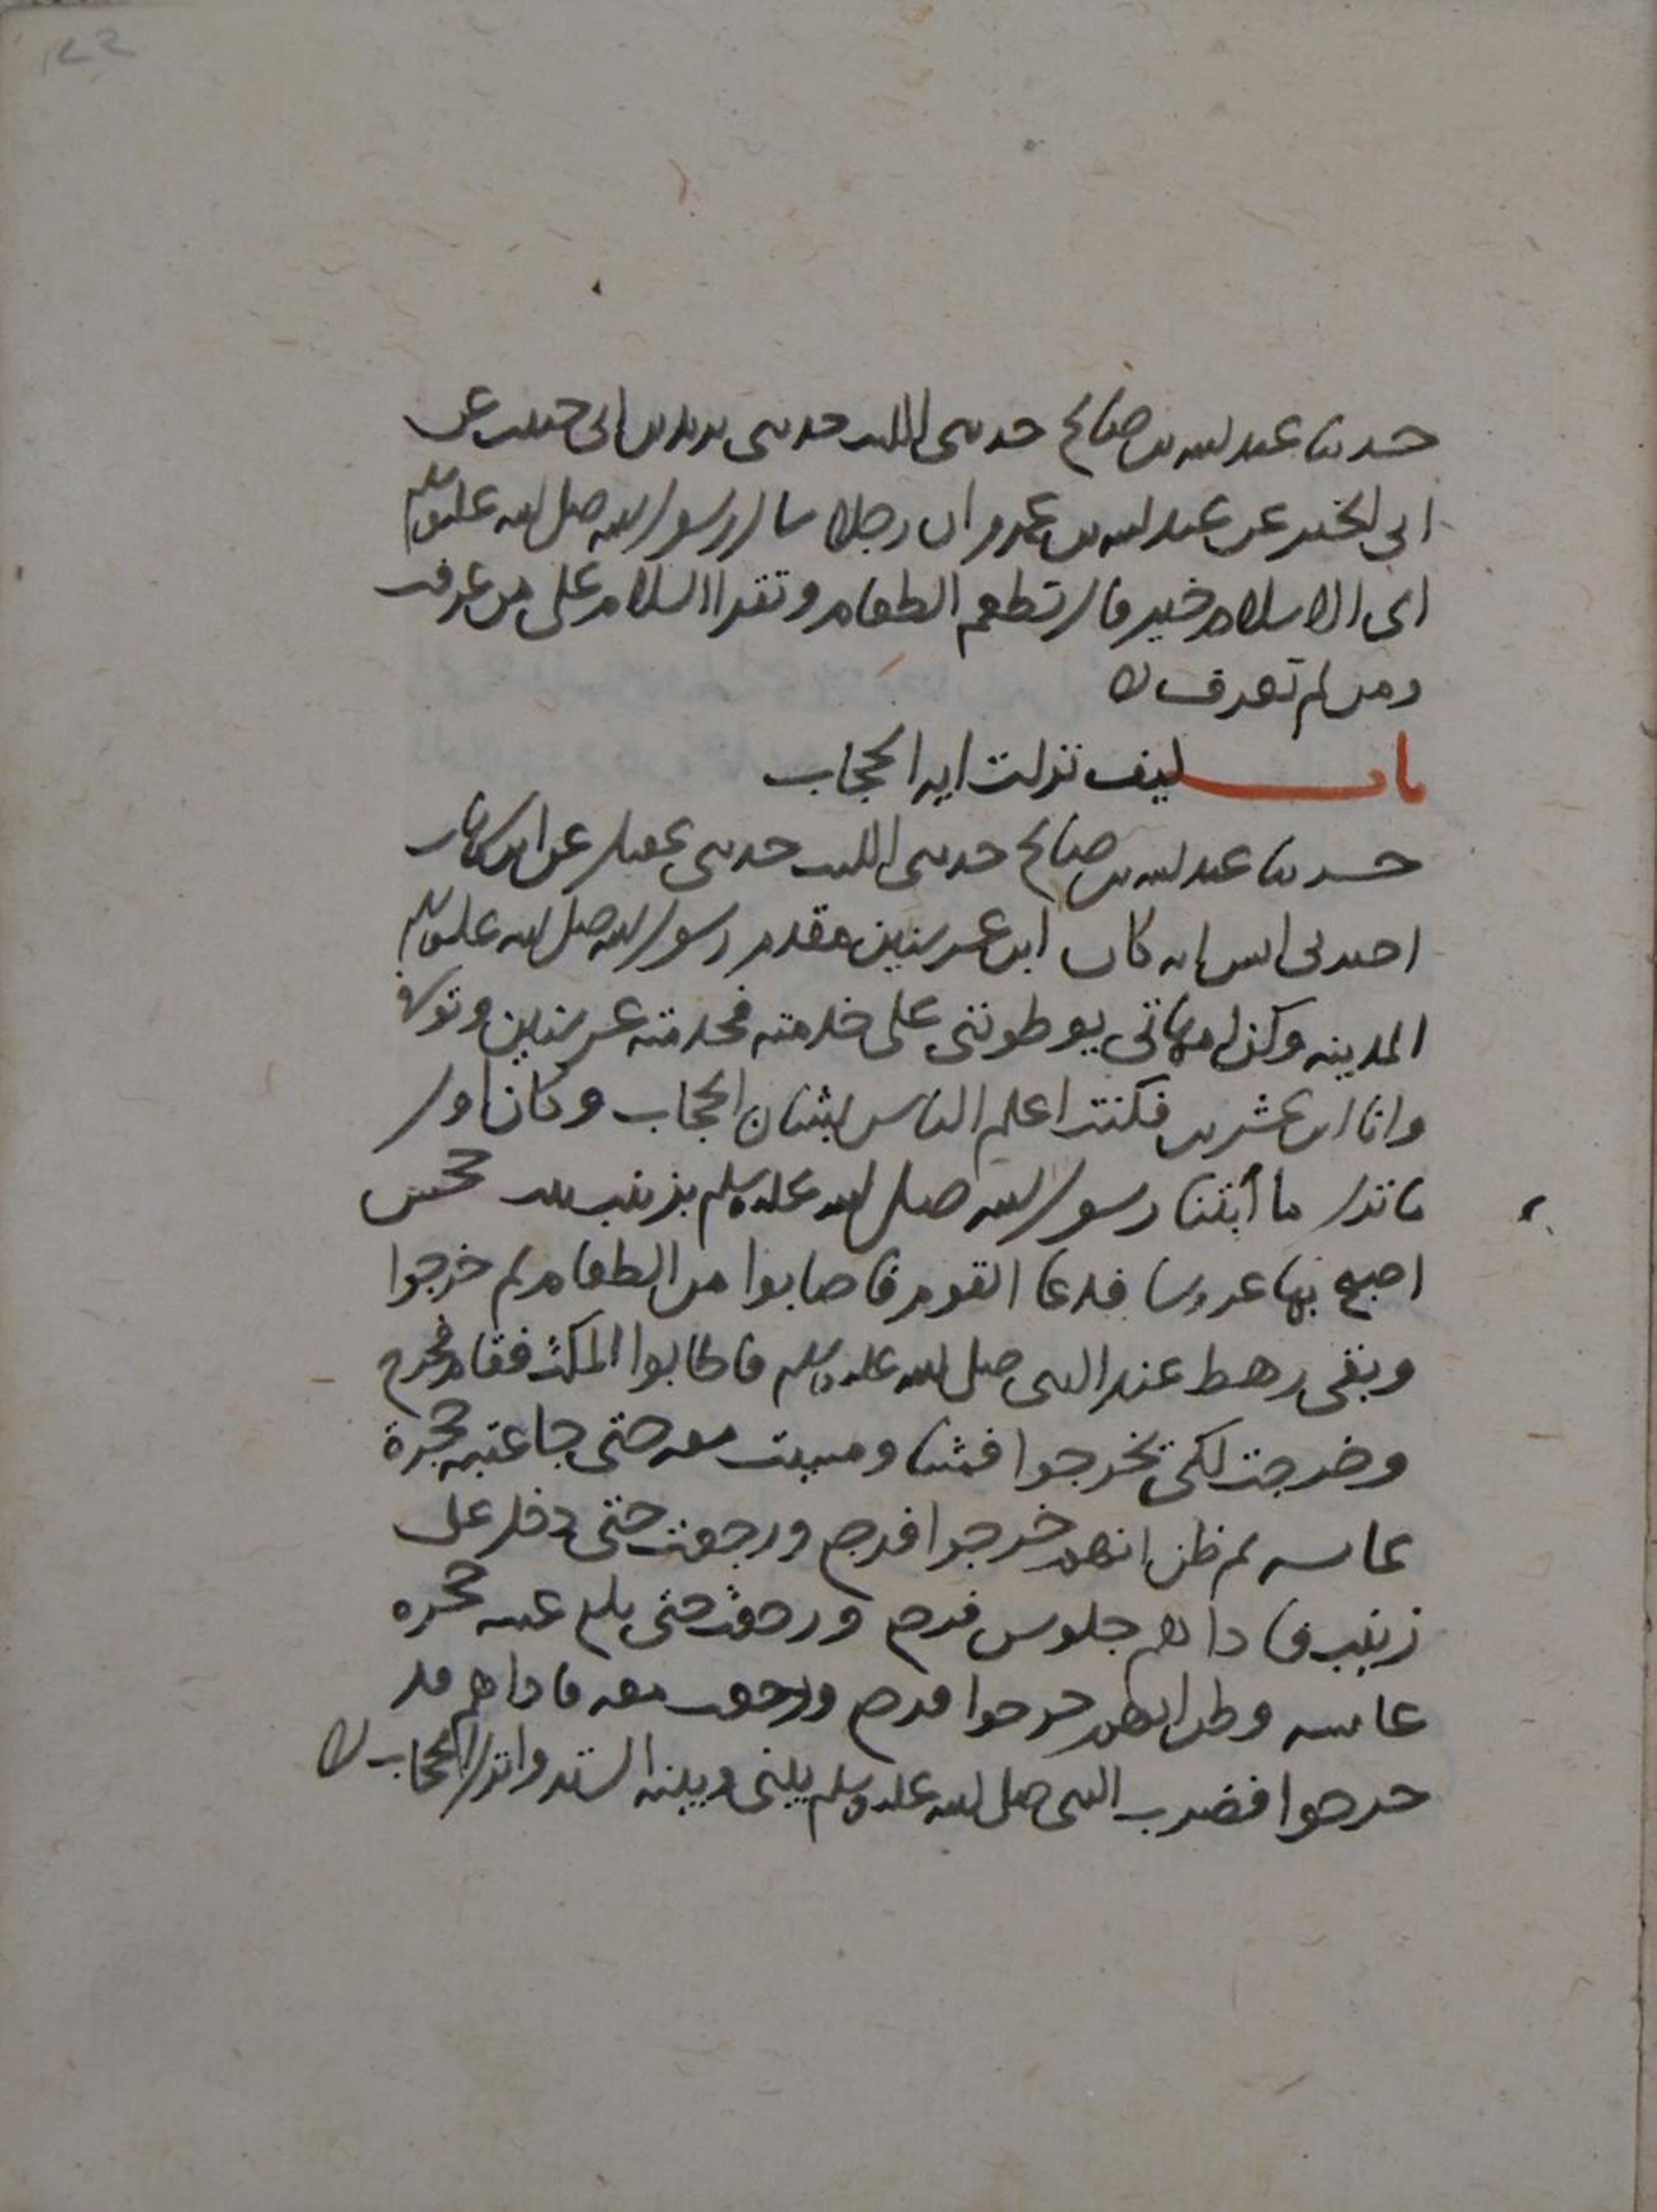 حدثنا عبد الله بن صالح حدثني الليث حدثني يزيد بن ابي حبيب عن
ابي الخير عن عبد الله بن عمرو ان رجلا سال رسول الله صلى الله عليه وسلم
اي الاسلام خير قال تطعم الطعام وتقرا السلام على من عرفت
ومن لم تعرف ه
باب كيف نزلت ايه الحجاب
حدثنا عبد الله بن صالح حدثني الليث حدثني عقيل عن ابن شهاب
اخبرني انس انه كان ابن عشر سنين مقدم رسول الله صلى الله عليه وسلم
المدينه وكن امهاتي يوطونني على خدمته فخدمته عشر سنين وتوفي
وانا ابن عشرين فكنت اعلم الناس بشان الحجاب وكان اول
ما نزل ما أبتنا رسول الله صلى الله عليه وسلم بزينب بنت جحش
اصبح بها عروسا فدعا القوم فاصابوا من الطعام ثم خرجوا
وبقي رهط عند النبي صلى الله عليه وسلم فاطالوا المكث فقام فخرج
وخرجت لكي يخرجوا فمشا ومشيت معه حتى جا عتبه حجرة
عائشه ثم ظن انهم خرجوا فرجع ورجعت حتى دخل على
زينب فاذا هم جلوس فرجع ورجعت حتى بلغ عتبه حجره
عائشه وظن انهم خرجوا فرجع ورجعت معه فاذا هم قد
خرجوا فضرب النبي صلى الله عليه وسلم بيني وبينه الستر وانزل الحجاب ه